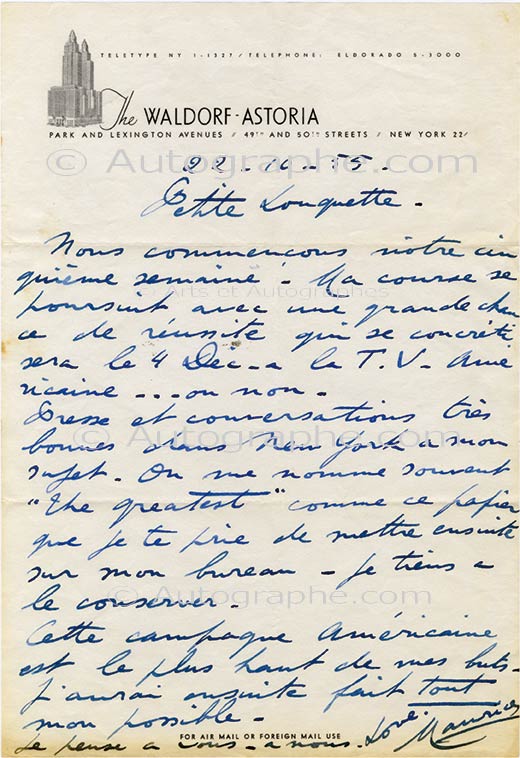 TELETYPE NY 1-1327 / TELEPHONE: ELDORADO 5-3000
The WALDORF-ASTORIA
PARK AND LEXINGTON AVENUES / 49TH AND 50TH STREETS / NEW YORK 22/
© Autographe.com
22-10-55.
Petite Louquette-
Nous commencons notre cin
quième semaine. Ma course se
© Arts et Autographes
poursuit avec une grande chan
ce de réussite qui se concréti
sera le 4 Déc- a la T.V- Amé
ricaine ---- ou non-
Presse et conversations très
bonnes dans New York a mon
© Autographe.com
sujet- On me nomme souvent
"The greatest" comme ce papier
que je te prie de mettre ensuite
sur mon bureau- je tiens a
le conserver-
© Autographe.com
Cette campagne Américaine
est le plus haut de mes buts-
J'aurai ensuite fait tout
mon possible-
FOR AIR MAIL OR FOREIGN MAIL USE
je pense a vous- a nous. Love. Maurice